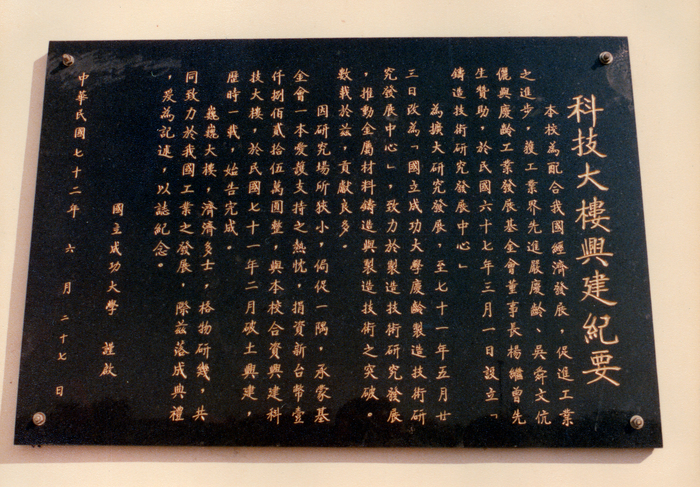 科技大樓興建紀要
本校為配合我國經濟發展，促進工業
之進步，獲工業界先進嚴慶齡、吳舜文伉
儷與慶齡工業發展基金會董事長楊繼曾先
生贊助，於民國六十七年三月一日設立「
鑄造技術研究發展中心」
為擴大研究發展，至七十一年五月廿
三日改為「國立成功大學慶齡製造技術研
究發展中心」，致力於製造技術研究發展
，推動金屬材料鑄造與製造技術之突破。
數載於茲，貢獻良多。
因研究場所狹小，侷促一隅，承蒙基
金會一本愛護支持之熱忱，捐資新台幣壹
仟捌佰貳拾伍萬圓整，與本校合資興建科
技大樓，於民國七十一年二月破土興建，
歷時一載，始告完成。
巍巍大樓，濟濟多士，格物研幾，共
同致力於我國工業之發展，際茲落成典禮
，爰為記述，以誌紀念。
國立成功大學　謹啟
中華民國七十二年　六　月　二十七　日